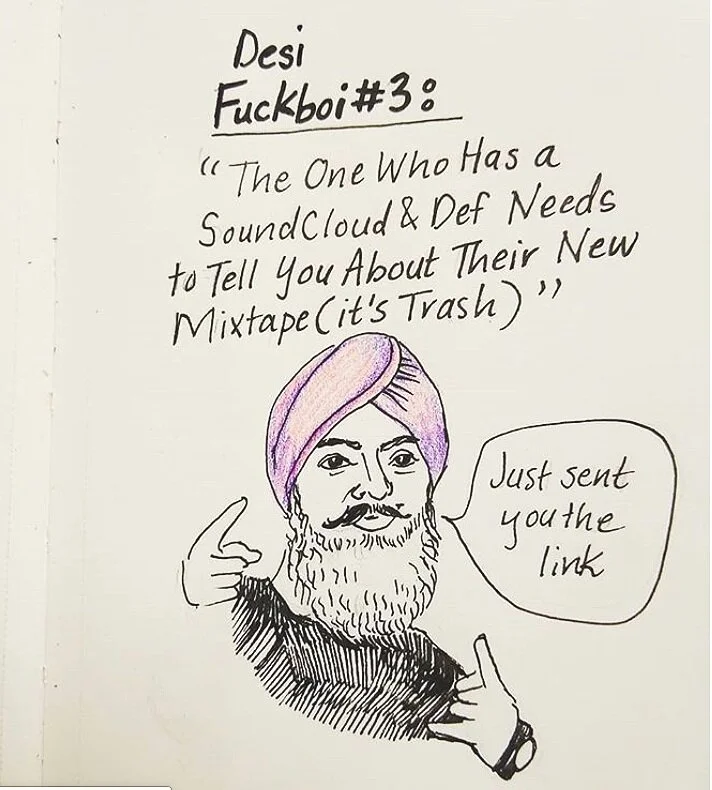 Desi
Fuckboi #3:
"The One Who Has a
SoundCloud & Def Needs
to Tell You About Their New
Mixtape (it's Trash)"
Just sent
you the
link